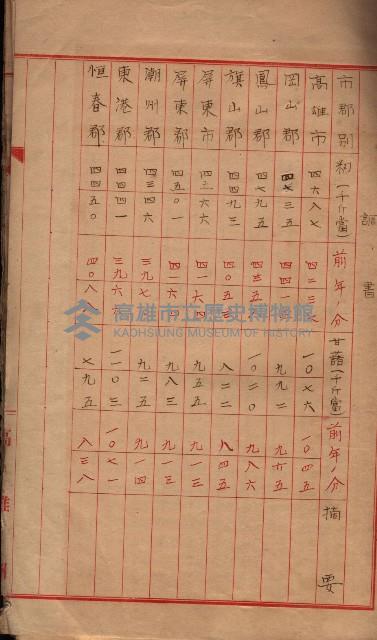 調書
市郡別 籾(千斤當) 前年ノ分 甘藷(千斤當) 前年ノ分 摘要
高雄市 四六八七 四二三七 一〇七六 一〇四五
岡山郡 四七三五 四四一 九九二 九六五
鳳山郡 四七九五 四三五 一〇二〇 九八六
旗山郡 四四九三 四〇五三 八二二 八四五
屏東市 四三六六 四一六四 九五五 九一三
屏東郡 四五〇一 四一六四 九八三 九一三
潮州郡 四三四六 三九七 九二五 九一四
東港郡 四四四一 三九六 一一〇三 一〇七一
恒春郡 四四五〇 四〇八八 七九五 八三八
高雄市立歷史博物館
KAOHSIUNG MUSEUM OF HISTORY
高雄州